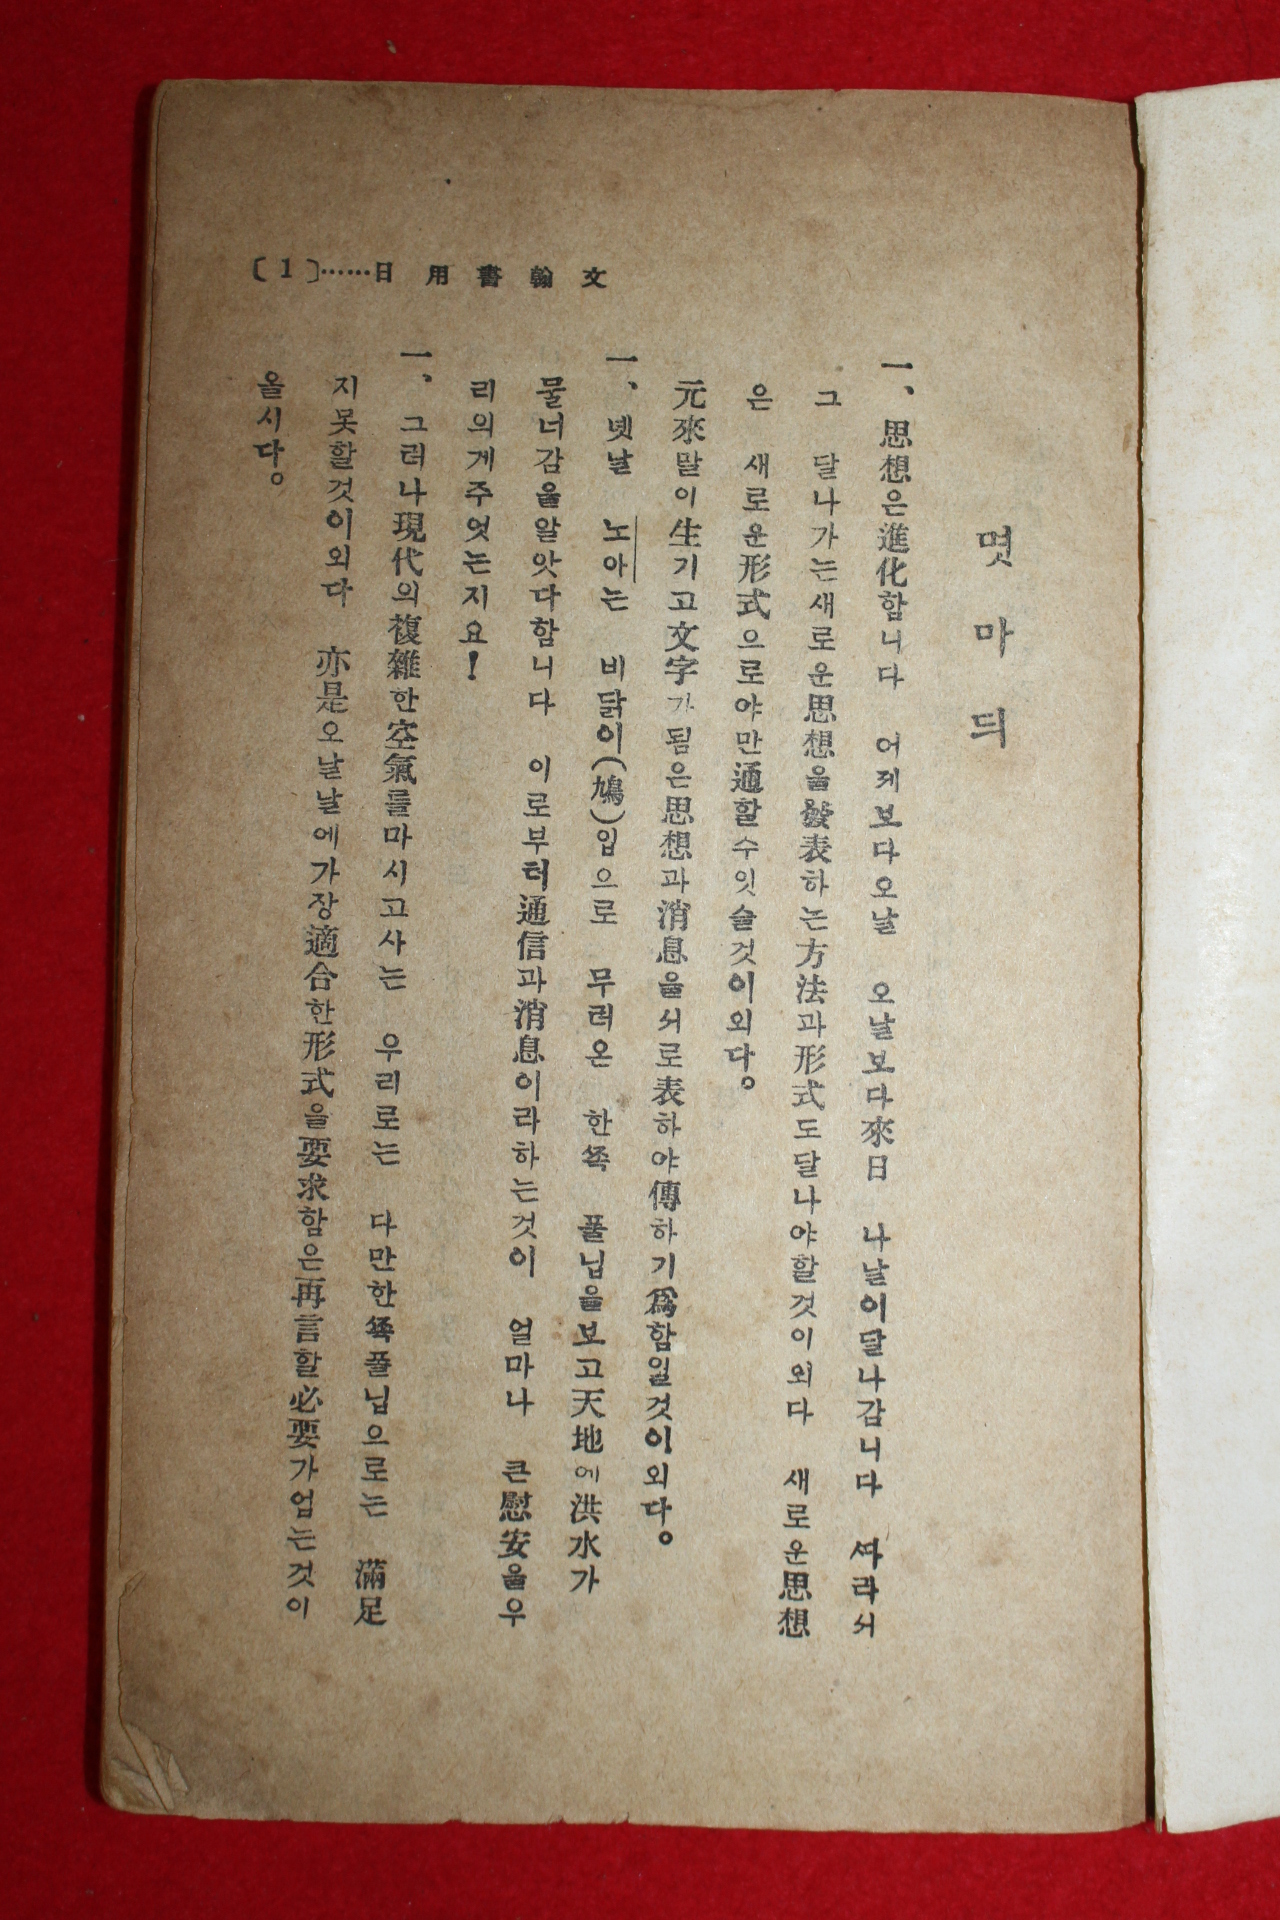 〔1〕……日用書翰文
멋마듸
一、思想은進化함니다 어제보다오날 오날보다來日 나날이달나감니다 ᄯᅡ라서
그 달나가는새로운思想을發表하는方法과形式도달나야할것이외다 새로운思想
은 새로운形式으로야만通할수잇슬것이외다。
元來말이生기고文字가됨은思想과消息을서로表하야傳하기爲함일것이외다。
一、녯날 노아는 비닭이(鳩)입으로 무러온 한ᄶᅩᆨ 풀닙을보고天地에洪水가
물너감을알앗다함니다 이로부터通信과消息이라하는것이 얼마나 큰慰安을우
리의게주엇는지요!
一、그러나現代의複雜한空氣를마시고사는 우리로는 다만한ᄶᅩᆨ풀닙으로는 滿足
지못할것이외다 亦是오날날에가장適合한形式을要求함은再言할必要가업는것이
올시다。